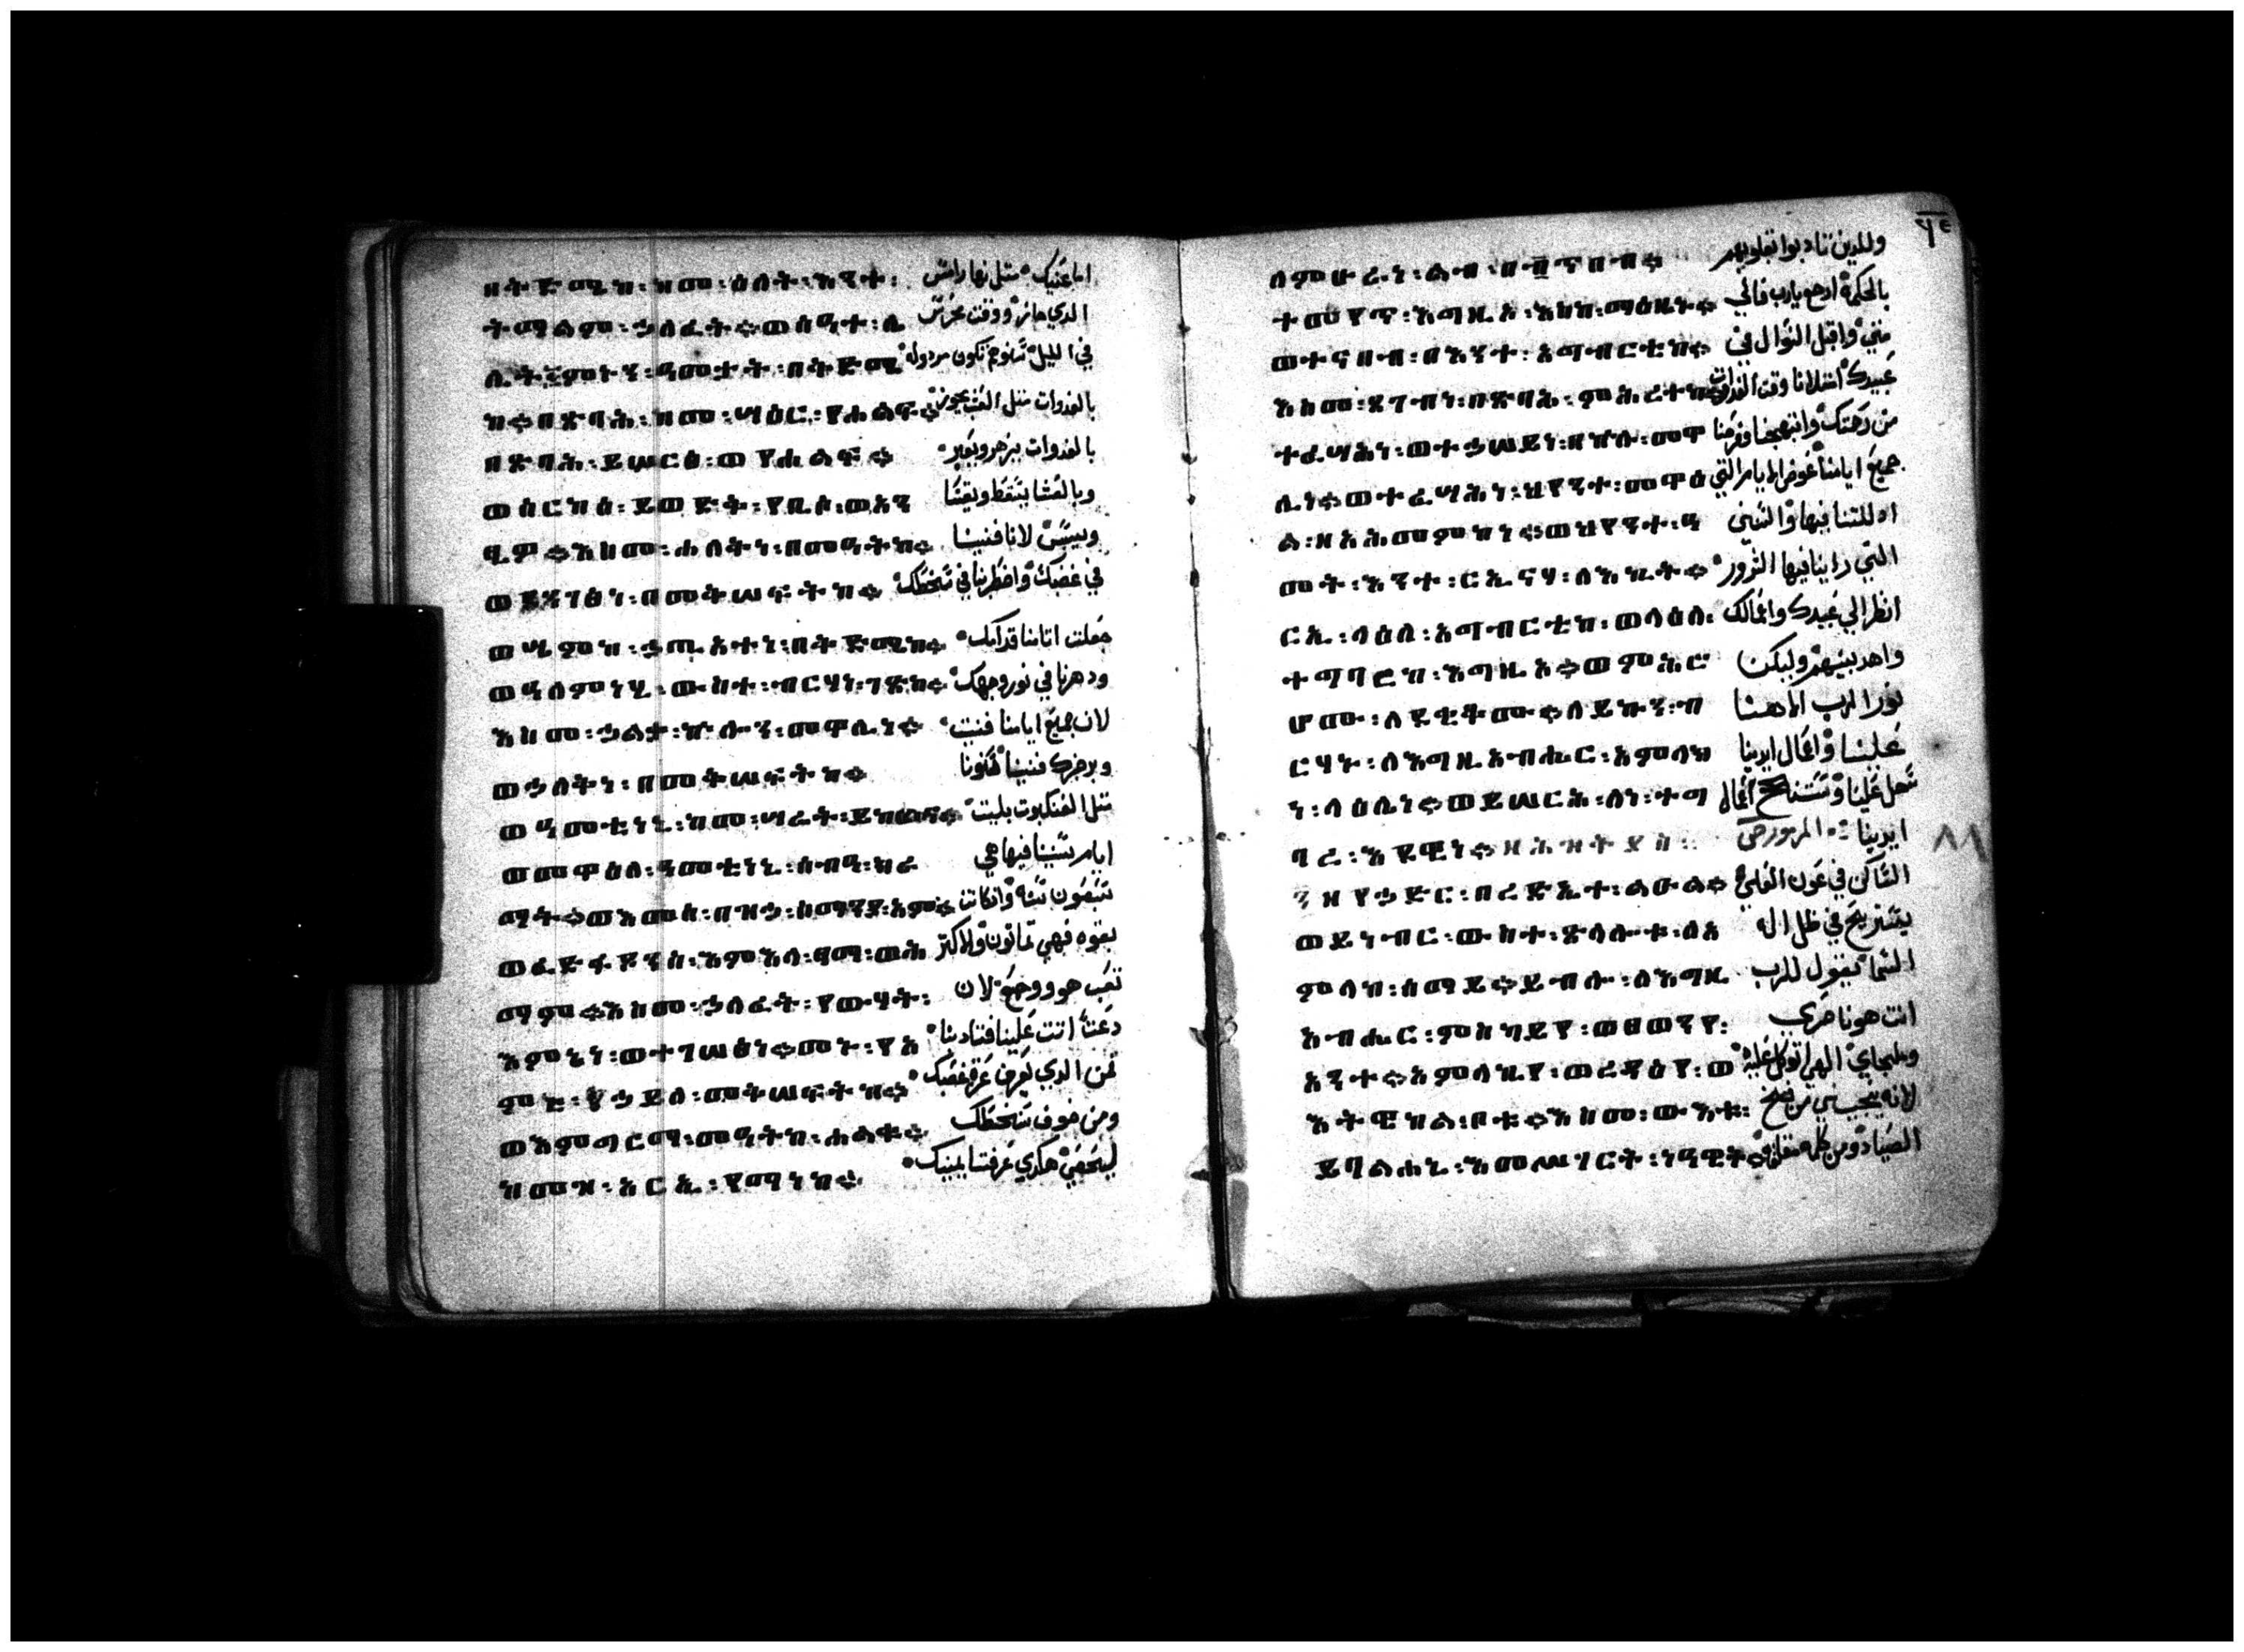 በቅድሜከ፡ ከመ፡ ዕለት፡ እንተ፡ مثل نهار امس
ትማልም፡ ኀለፈት። ወሰዓተ፡ ሌ الدي جاز ووقت محرس
ሊት፡ በቅድሜ في الليل تكون مردوله
ከ። በጽባሕ፡ ከመ፡ ሣዕር፡ የኀልፍ بالغدوات مثل العشب
በጽባሕ፡ ይሠርፅ፡ ወየኀልፍ። بالغدوات يزهر ويعبر
ወሰርከ፡ ይወድቅ፡ የቢስ፡ ወአን وبالعشا يسقط ويقسا
ጺዎ። እስመ፡ ኀለቅነ፡ በመዓትከ። وييبس لاننا فنينا
ወደንገፅነ፡ በመቅሠፍትከ። في غضبك واضطربنا في سخطك
ወሤምከ፡ ኀጢአተነ፡ በቅድሜከ። جعلت اتامنا قدامك
ወዓለምነኒ፡ ውስተ፡ ብርሃነ፡ ገጽከ። ودهرنا في نور وجهك
እስመ፡ ኀልቀ፡ ኵሉ፡ መዋዕሊነ። لان جميع ايامنا فنيت
ወኀለቅነ፡ በመቅሠፍትከ። وبرجزك فنينا سنونا
ወዓመቲነኒ፡ ከመ፡ ሣሬት፡ ይከውና። مثل العنكبوت بليت
ወመዋዕለ፡ ዓመቲነኒ፡ ሰብዓ፡ ክረ ايام سنينا فيها هي
ምት። ወእመሰ፡ በዝኀ፡ ሰማንያ፡ ዓም። سبعون سنه وان كانت
ወፈድፋዶንሰ፡ እምእለ፡ ፃማ፡ ወሕ بقوه فهي تمانون والاكتر
ማም። እስመ፡ ኀለፈት፡ የውሃት፡ تعب هو ووجع لان
እምኔነ፡ ወተገሠፅነ። መኑ፡ የአ دعتا اتت علينا فتادبنا
ምር፡ ኀይለ፡ መቅሠፍትከ። فمن الدي يعرف عز غضبك
ወእምግርማ፡ መዓትከ፡ ኀልቁ። ومن خوف سخطك
ከመዝ፡ አርኢ፡ የማነከ። هكدي عرفنا يمينك
٩٤
ለምሁራነ፡ ልብ፡ በጥበብ። وللدين تادبوا بقلوبهم
ተመየጥ፡ እግዚኦ፡ እስከ፡ ማዕዜኑ። بالحكمة ارجع يارب فالي
ወተናበብ፡ በእንተ፡ አግብርቲከ። متي واقبل السوال في
እስመ፡ ጸገብነ፡ በጽባሕ፡ ምሕረተከ። عبيدك امتلانا وقت الغدوات
ተፈሣሕነ፡ ወተኀሠይነ፡ በኵሉ፡ መዋዕ من رحمتك وابتهجنا وفرحنا
ሊነ። ወተፈሣሕነ፡ ህየንተ፡ መዋዕ جميع ايامنا عوض الايام التي
ል፡ ዘአሕመምከነ። ወህየንተ፡ ዓ ادللتنا فيها والسنين
መት፡ እንተ፡ ርኢናሃ፡ ለእኪት። التي راينا فيها الشرور
ርኢ፡ ላዕለ፡ አግብርቲከ፡ ወላዕለ፡ انظر الي عبيدك واعمالك
ተግባርከ፡ እግዚኦ። ወምሕሮ واهد بنيهم وليكن
ሆሙ፡ ለደቂቆሙ። ለይኩን፡ ብ نور الرب الاهنا
ርሃኑ፡ ለእግዚአብሔር፡ አምላክ علينا واعمال ايدينا
ነ፡ ላዕሌነ። ወይሠርሕ፡ ለነ፡ ተግ سهل علينا
ባረ፡ እደዊነ። ايدينا المزمور
ዘየኀድር፡ በረድኤተ፡ ልዑል። الساكن في عون العلي
ወይነብር፡ ውስተ፡ ጽላሎቱ፡ ለአ يستريح في ظل اله
ምላከ፡ ሰማይ። ይብሎ፡ ለእግዚ السما يقول للرب
አብሔር፡ ምስካይየ፡ ወፀወንየ፡ انت هو ناصري
አንተ። አምላኪየ፡ ወረዳእየ፡ ወ وملجاي الهي اتوكل عليه
እትዌከል፡ ቦቱ። እስመ፡ ውእቱ፡ لانه ينجيني من فخ
ይባልሐኒ፡ እመሥገርት፡ ነዓዊት። الصياد ومن كلمه